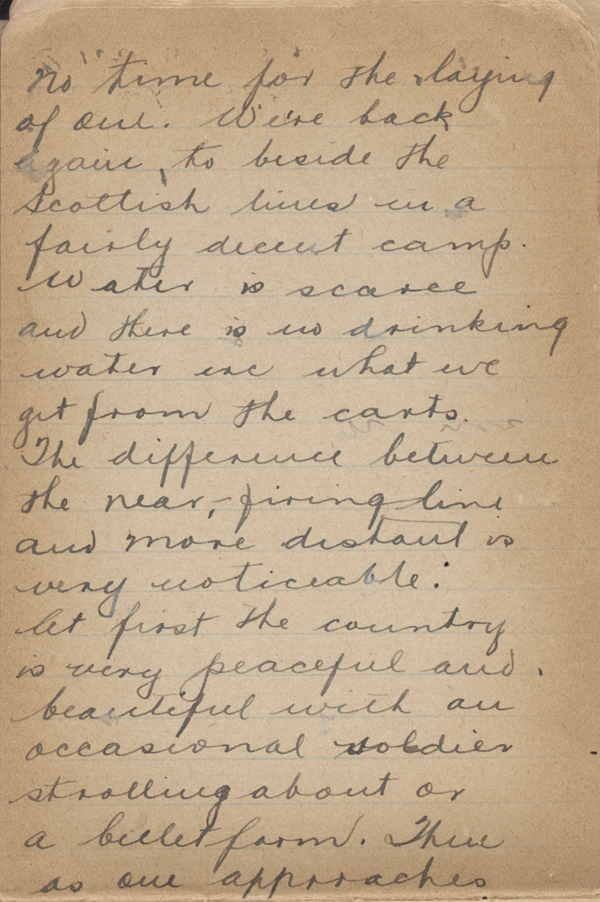 no time for the laying
of one. We're back
again, to beside the
Scottish lines in a
fairly decent camp.
Water is scarce
and there is no drinking
water exc what we
get from the carts.
The difference between
the near, firing line
and more distant is
very noticeable:
At first the country
is very peaceful and
beautiful with an
occasional soldier
strolling about or
a billet farm. Then
as one approaches